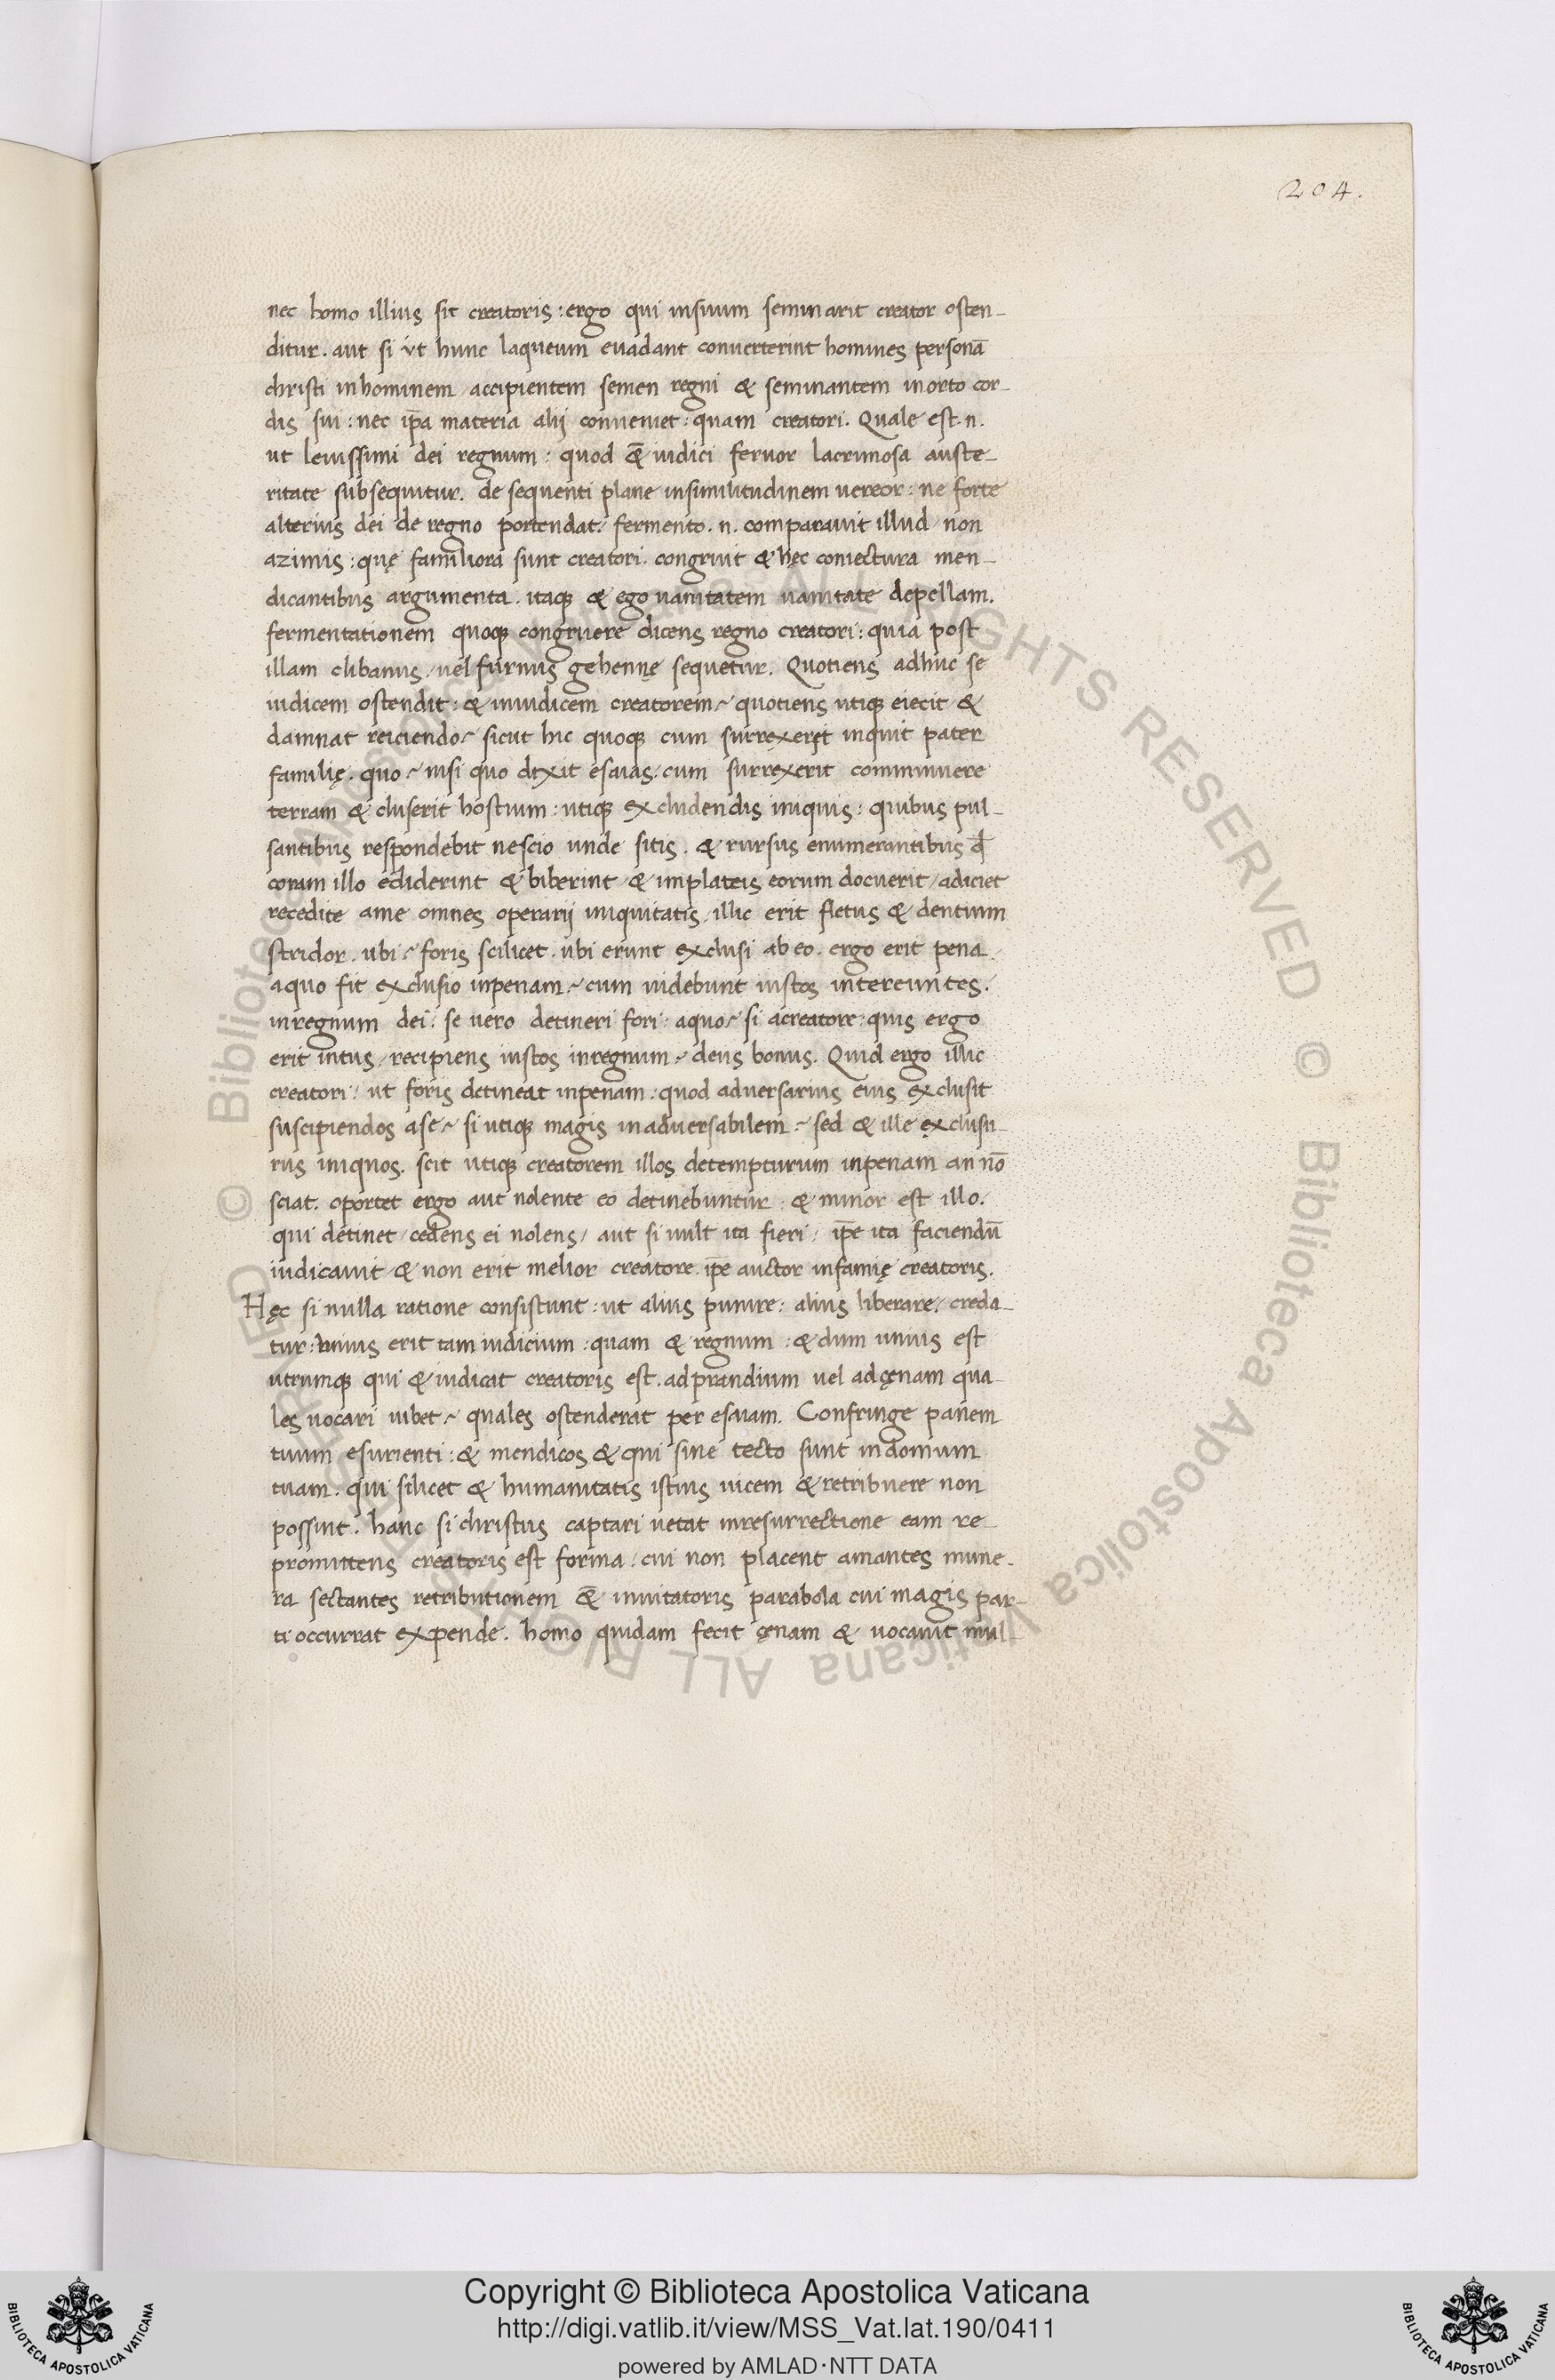 204.
nec homo illius sit creatoris : ergo qui insuum seminarit creator osten-
ditur. aut si ut hunc laqueum euadant conuerterint homines personā
christi inhominem accipientem semen regni & seminantem inorto cor-
dis sui : nec ip̄a materia alij conueniet : quam creatori. Quale est .n.
ut leuissimi dei regnum : quod &̄ iudici feruor lacrimosa auste-
ritate subsequitur. de sequenti plane insimilitudinem uereor : ne forte
alterius dei de regno portendat / fermento .n. comparauit illud / non
azimis : quę familiora sunt creatori. congruit & hęc coniectura men-
dicantibus argumenta. itaqꝫ & ego uanitatem uanitate depellam.
fermentationem quoqꝫ congruere dicens regno creatori : quia post
illam clibanus / uel furnus gehennę sequetur. Quotiens adhuc se
iudicem ostendit : & iniudicem creatorem / quotiens utiqꝫ eiecit &
damnat reiciendo / sicut hic quoqꝫ cum surrexeręt inquit pater
familię. quo / nisi quo dixit esaias. cum surrexerit comminuere
terram & cluserit hostium : utiqꝫ excludendis iniquis : quibus pul-
santibus respondebit nescio unde sitis. & rursus enumerantibus qđ
coram illo ediderint & biberint & inplateis eorum docuerit / adiciet
recedite ame omnes operarij iniquitatis / illic erit fletus & dentium
stridor. ubi / foris scilicet. ubi erunt exclusi ab eo. ergo erit pena
aquo fit exclusio inpenam / cum uidebunt iustos intereuntes.
inregnum dei : se uero detineri fori : aquo / si acreatore : quis ergo
erit intus / recipiens iustos inregnum / deus bonus. Quid ergo illic
creatori / ut foris detineat inpenam : quod aduersarius eius exclusit
suscipiendos ase / si utiqꝫ magis inaduersabilem / sed & ille exclusu-
rus iniquos. scit utiqꝫ creatorem illos detempturum inpenam an nō
sciat. oportet ergo aut nolente eo detinebuntur : & minor est illo.
qui detinet / cedens ei nolens / aut si uult ita fieri / ip̄e ita faciendū
iudicauit & non erit melior creatore ip̄e auctor infamię creatoris.
Hęc si nulla ratione consistunt : ut alius punire : alius liberare / creda-
tur : unius erit tam iudicium : quam & regnum : & dum unius est
utrumqꝫ qui & iudicat creatoris est. adprandium uel adçenam qua-
les uocari iubet / quales ostenderat per esaiam. Confringe panem
tuum esurienti : & mendicos & qui sine tecto sunt indomum
tuam. qui silicet & humanitatis istius uicem & retribuere non
possint. hanc si christus captari uetat inresurrectione eam re-
promittens creatoris est forma / cui non placent amantes mune-
ra sectantes retributionem &̄ inuitatoris parabola cui magis par-
ti occurrat expende. homo quidam fecit çenam & uocauit mul-
© Biblioteca Apostolica Vaticana ALL RIGHTS RESERVED
© Biblioteca Apostolica Vaticana ALL RIGHTS RESERVED
Copyright © Biblioteca Apostolica Vaticana
http://digi.vatlib.it/view/MSS_Vat.lat.190/0411
powered by AMLAD·NTT DATA
BIBLIOTECA APOSTOLICA VATICANA
BIBLIOTECA APOSTOLICA VATICANA